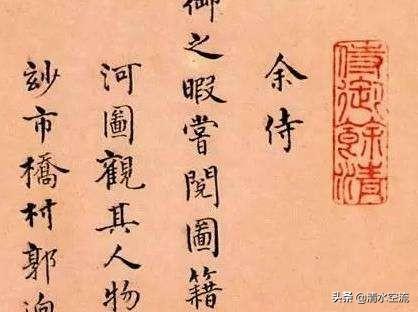 侍御餘清
余侍
御之暇嘗閱圖籍
河圖觀其人物
玅市橋村郭迥
头条 @清水空流